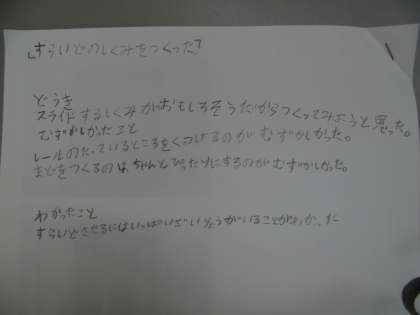 「すらいどのしくみをつくった」
どうき
スライドするしくみがおもしろそうだからつくってみようと思った。
むずかしかったこと
レールのたっているところをくっつけるのがむずかしかった。
まどをつくるのは、ちゃんとぴったりにするのがむずかしかった。
わかったこと
すらいどさせるにはいっぱいざいりょうがいることがわかった